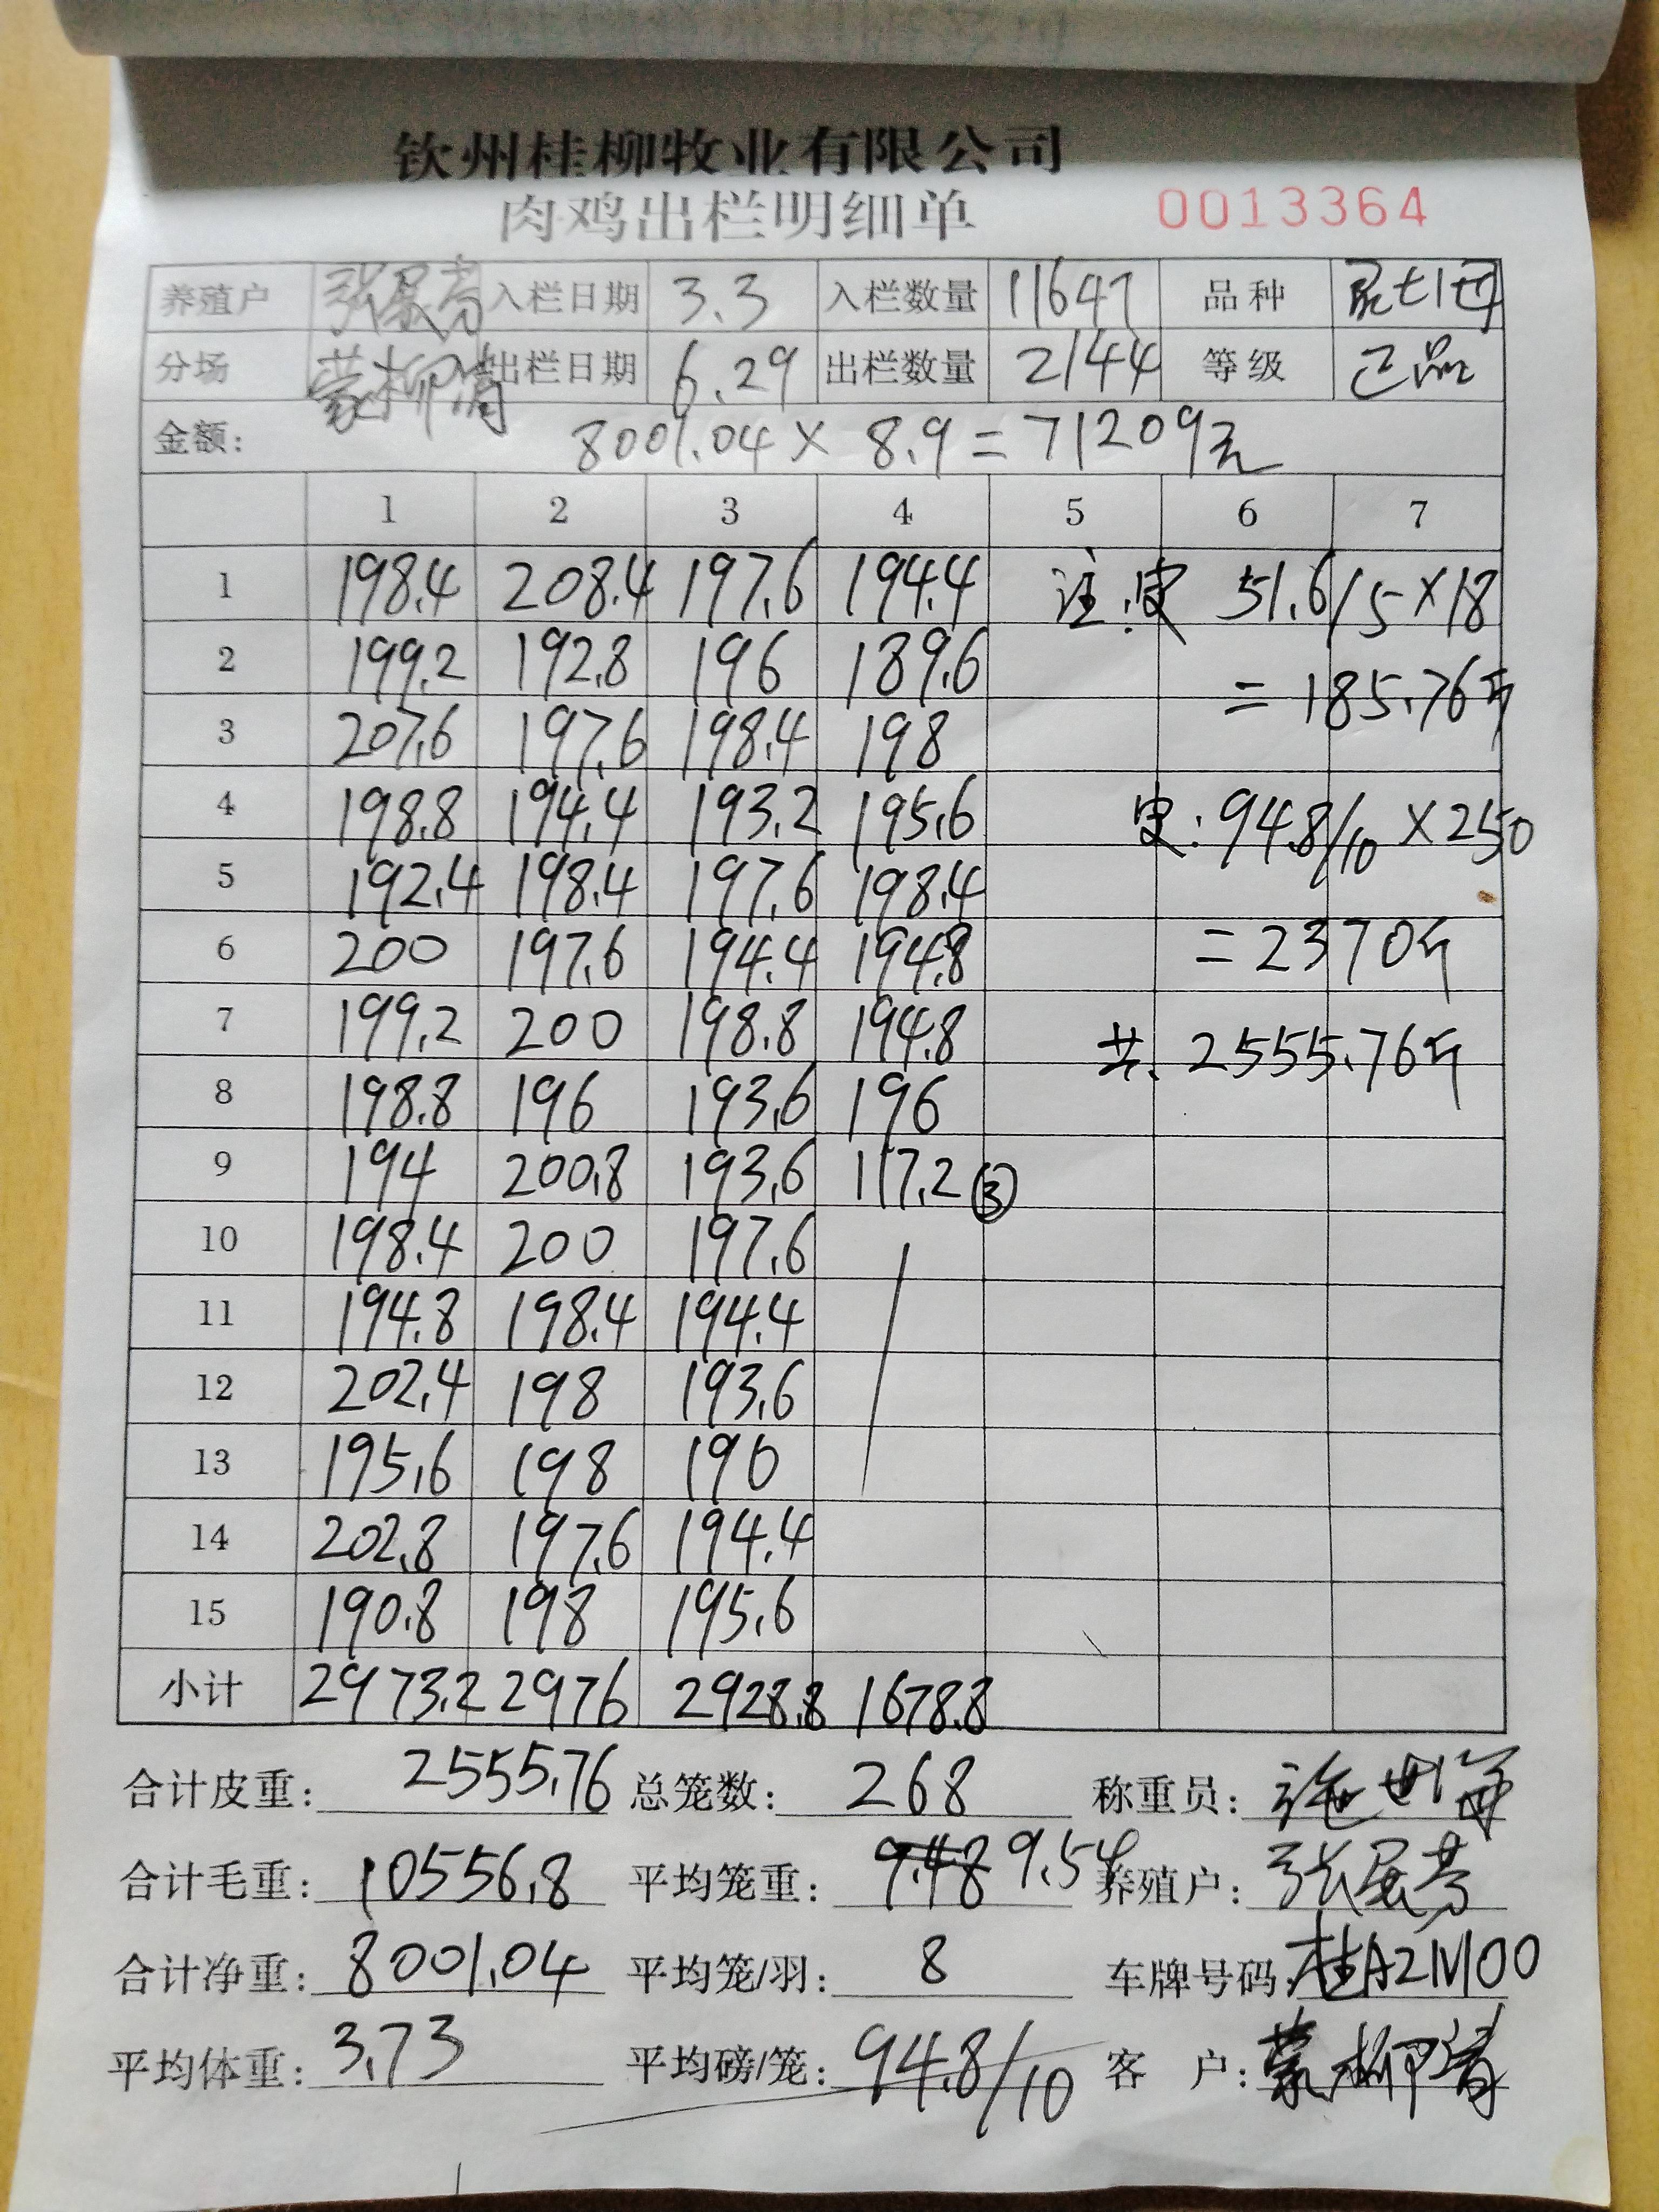 钦州桂柳牧业有限公司
肉鸡出栏明细单 0013364
养殖户 张展芳 入栏日期 3.3 入栏数量 11647 品种
分场 蒙柳清 出栏日期 6.29 出栏数量 2144 等级 正品
金额: 8001.04×8.9=71209元
1 2 3 4 5 6 7
1 198.4 208.4 197.6 194.4 注:皮 51.6/5×18
2 199.2 192.8 196 189.6 =185.76斤
3 207.6 197.6 198.4 198
4 198.8 194.4 193.2 195.6 皮:94.8/10×250
5 192.4 198.4 197.6 198.4
6 200 197.6 194.4 194.8 =2370斤
7 199.2 200 198.8 194.8 共.2555.76斤
8 198.8 196 193.6 196
9 194 200.8 193.6 117.2 ③
10 198.4 200 197.6
11 194.8 198.4 194.4
12 202.4 198 193.6
13 195.6 198 190
14 202.8 197.6 194.4
15 190.8 198 195.6
小计 2973.2 2976 2928.8 1678.8
合计皮重: 2555.76 总笼数: 268 称重员: 施世海
合计毛重: 10556.8 平均笼重: 9.48 9.54 养殖户: 张展芳
合计净重: 8001.04 平均笼/羽: 8 车牌号码:
平均体重: 3.73 平均磅/笼: 94.8/10 客 户: 蒙柳清